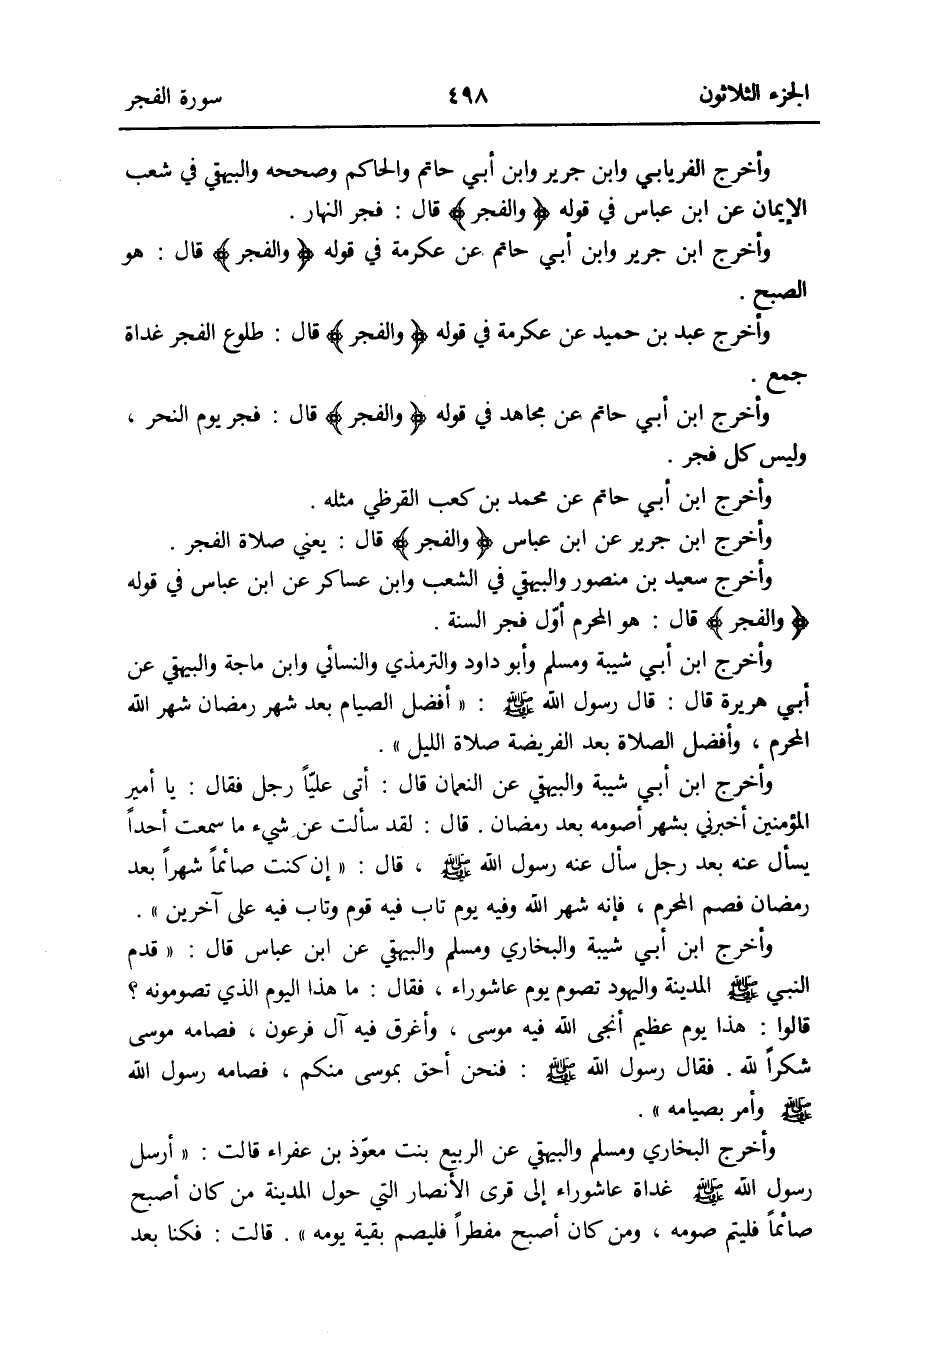 الجزء الثلاثون ٤٩٨ سورة الفجر
وأخرج الفريابي وابن جرير وابن أبي حاتم والحاكم وصححه والبيهقي في شعب
الإيمان عن ابن عباس في قوله ﴿ والفجر ﴾ قال : فجر النهار .
وأخرج ابن جرير وابن أبي حاتم عن عكرمة في قوله ﴿ والفجر ﴾ قال : هو
الصبح .
وأخرج عبد بن حميد عن عكرمة في قوله ﴿ والفجر ﴾ قال : طلوع الفجر غداة
جمع .
وأخرج ابن أبي حاتم عن مجاهد في قوله ﴿ والفجر ﴾ قال : فجر يوم النحر ،
وليس كل فجر .
وأخرج ابن أبي حاتم عن محمد بن كعب القرظي مثله .
وأخرج ابن جرير عن ابن عباس ﴿ والفجر ﴾ قال : يعني صلاة الفجر .
وأخرج سعيد بن منصور والبيهقي في الشعب وابن عساكر عن ابن عباس في قوله
﴿ والفجر ﴾ قال : هو المحرم أوّل فجر السنة .
وأخرج ابن أبي شيبة ومسلم وأبو داود والترمذي والنسائي وابن ماجة والبيهقي عن
أبي هريرة قال : قال رسول الله ﷺ : « أفضل الصيام بعد شهر رمضان شهر الله
المحرم ، وأفضل الصلاة بعد الفريضة صلاة الليل » .
وأخرج ابن أبي شيبة والبيهقي عن النعمان قال : أتى عليّاً رجل فقال : يا أمير
المؤمنين أخبرني بشهر أصومه بعد رمضان . قال : لقد سألت عن شيء ما سمعت أحداً
يسأل عنه بعد رجل سأل عنه رسول الله ﷺ ، قال : « إن كنت صائماً شهراً بعد
رمضان فصم المحرم ، فإنه شهر الله وفيه يوم تاب فيه قوم وتاب فيه على آخرين » .
وأخرج ابن أبي شيبة والبخاري ومسلم والبيهقي عن ابن عباس قال : « قدم
النبي ﷺ المدينة واليهود تصوم يوم عاشوراء ، فقال : ما هذا اليوم الذي تصومونه ؟
قالوا : هذا يوم عظيم أنجى الله فيه موسى ، وأغرق فيه آل فرعون ، فصامه موسى
شكراً لله . فقال رسول الله ﷺ : فنحن أحق بموسى منكم ، فصامه رسول الله
ﷺ وأمر بصيامه » .
وأخرج البخاري ومسلم والبيهقي عن الربيع بنت معوّذ بن عفراء قالت : « أرسل
رسول الله ﷺ غداة عاشوراء إلى قرى الأنصار التي حول المدينة من كان أصبح
صائماً فليتم صومه ، ومن كان أصبح مفطراً فليصم بقية يومه » . قالت : فكنا بعد